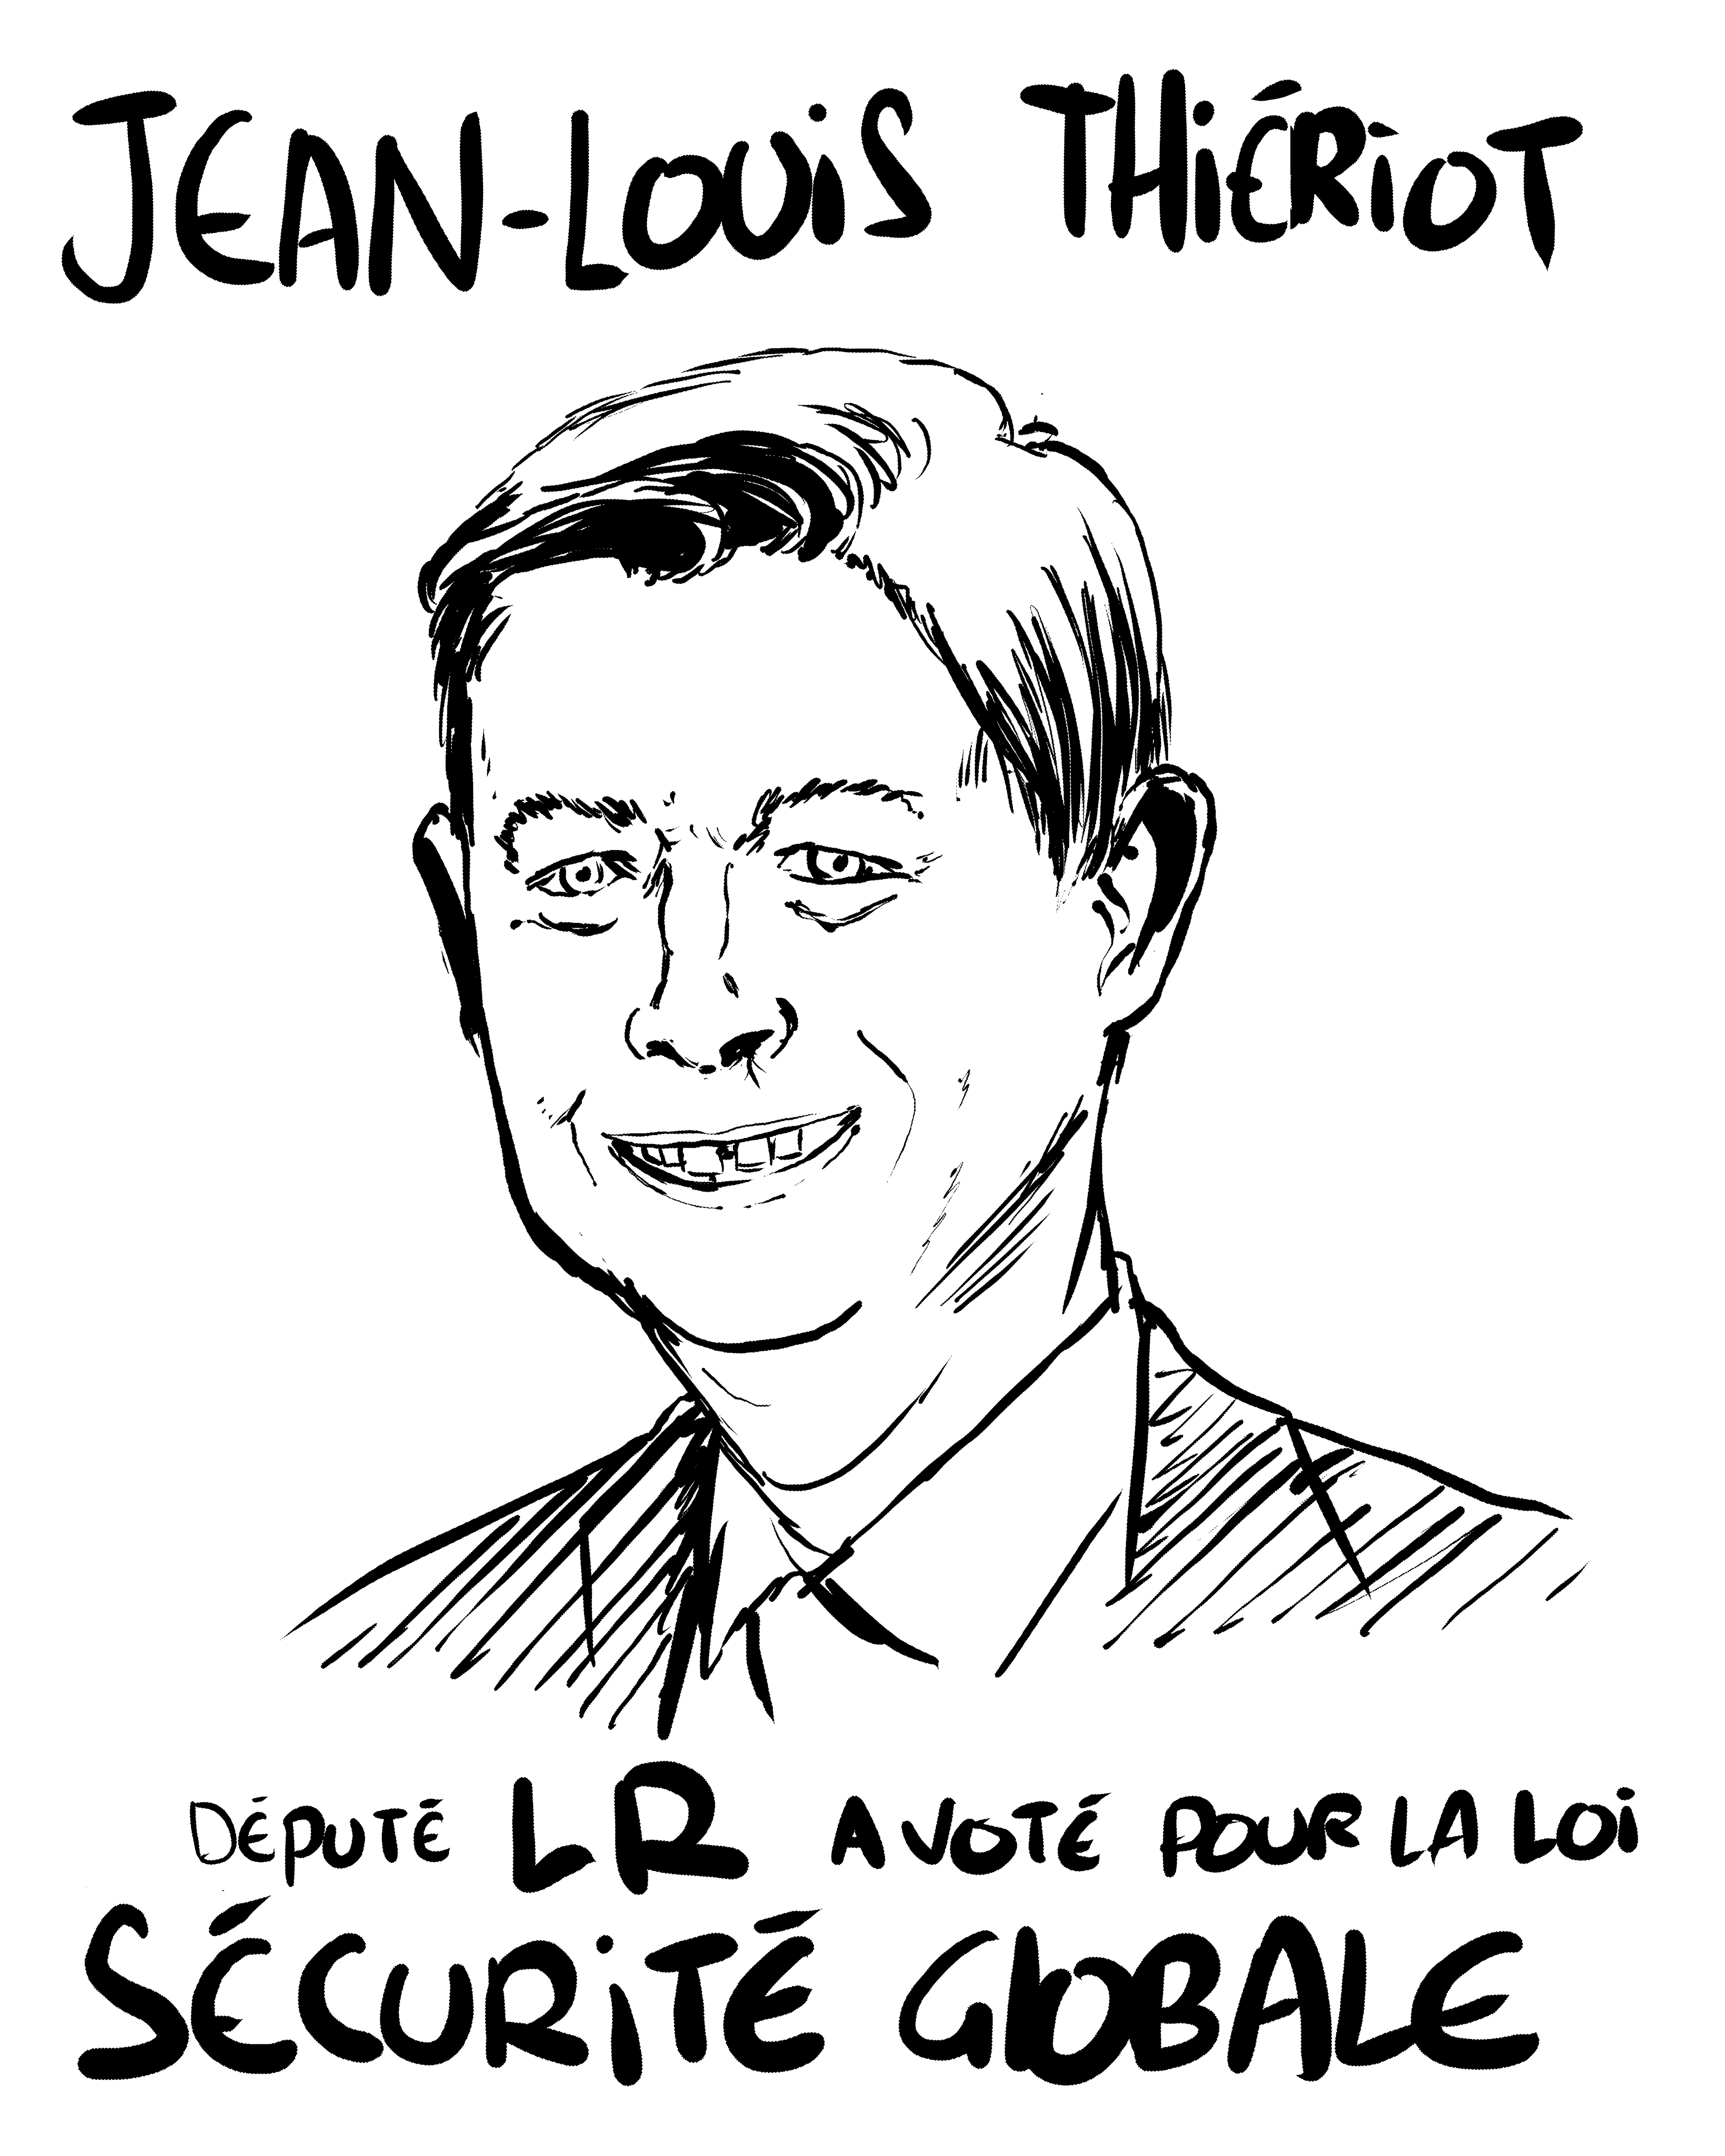 JEAN-LOUIS THIÉRIOT
DÉPUTÉ LR A VOTÉ POUR LA LOI
SÉCURITÉ GLOBALE